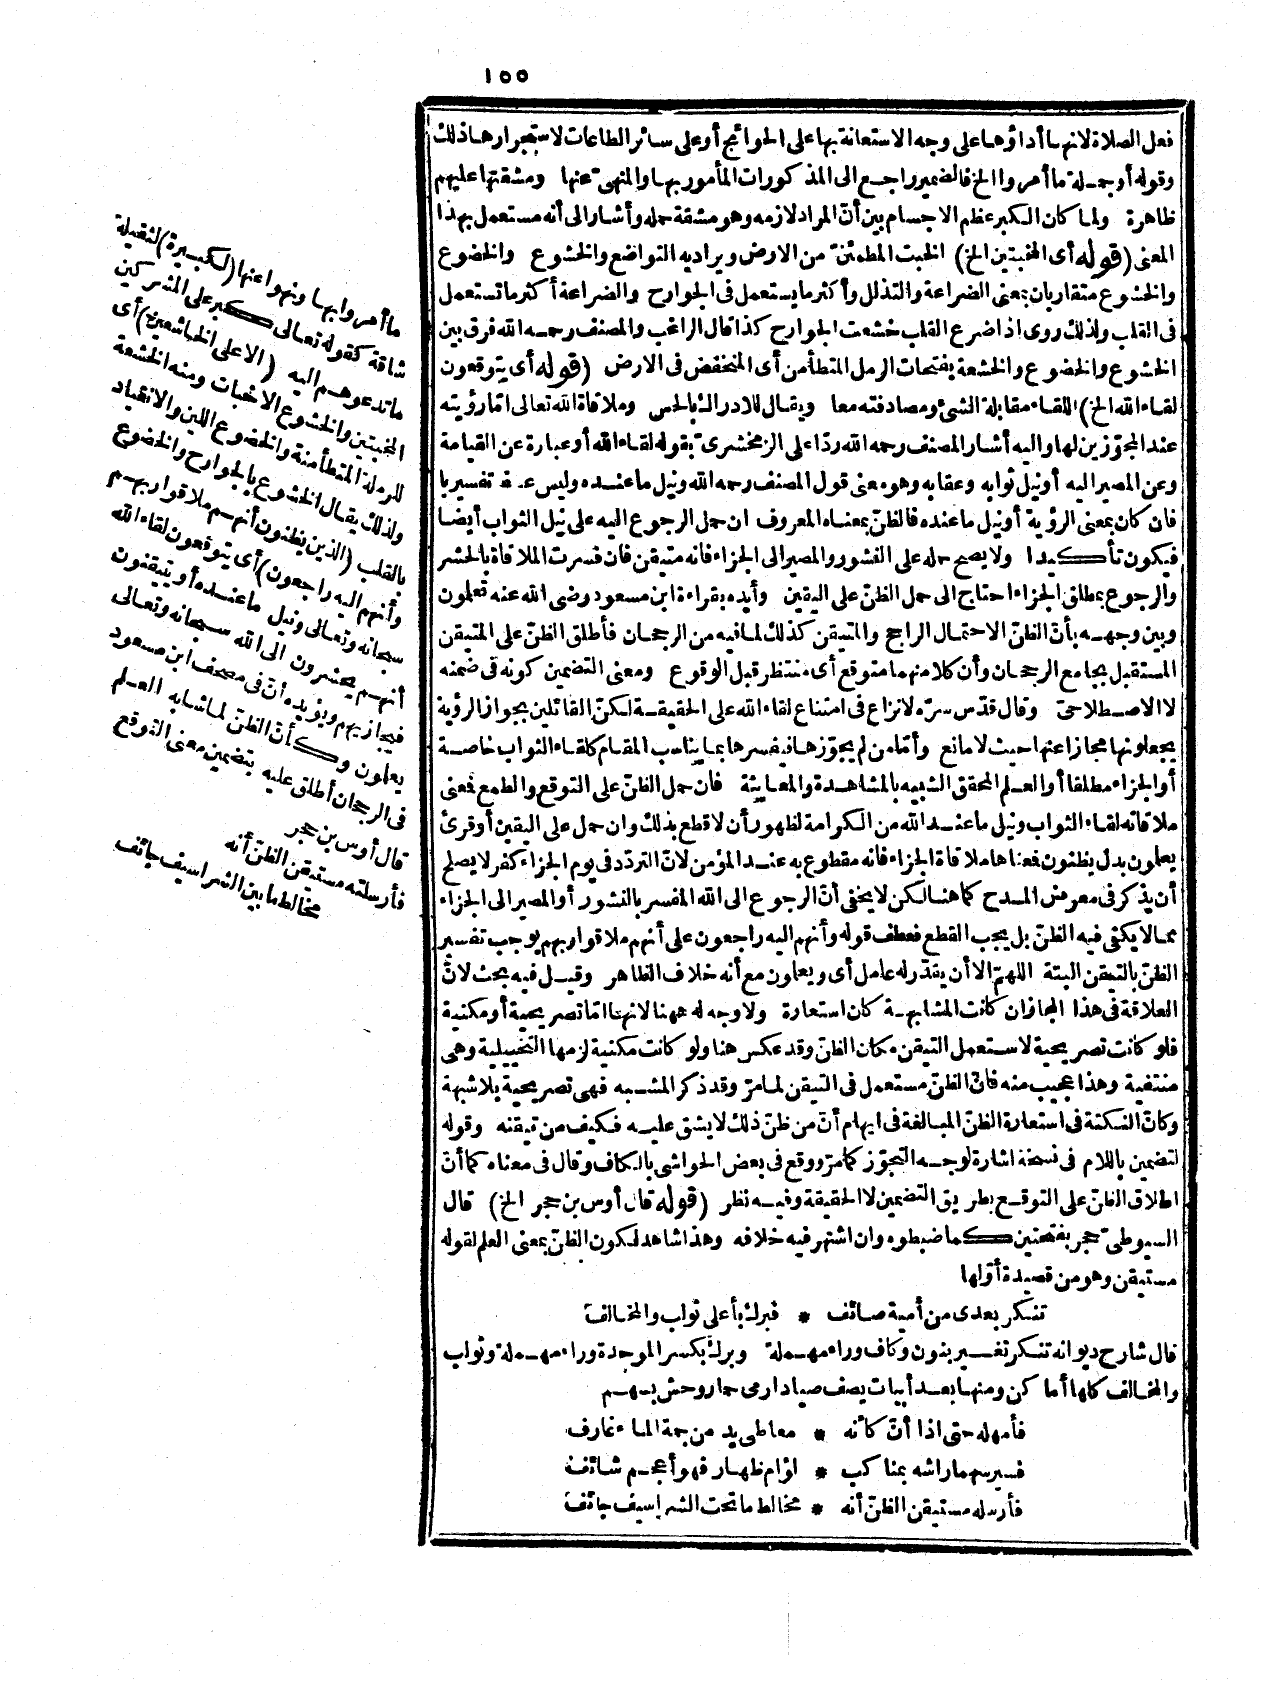 ١٥٥
فعل الصلاة لانهما أداؤها على وجه الاستعانة بها على الحوائج أو على سائر الطاعات لاستجرارها ذلك
وقوله أو جملة ما أمروا الخ فالضمير راجع الى المذكورات المأمور بها والمنهى عنها ومشقتها عليهم
ظاهرة ولما كان الكبر عظم الاجسام بين أنّ المراد لازمه وهو مشقة حمله وأشار الى أنه مستعمل بهذا
المعنى (قوله أى المخبتين الخ) الخبت المطمئنّ من الارض ويراد به التواضع والخشوع والخضوع
والخشوع متقاربان بمعنى الضراعة والتذلل وأكثر ما يستعمل فى الجوارح والضراعة أكثر ما تستعمل
فى القلب ولذلك روى اذا ضرع القلب خشعت الجوارح كذا قال الراغب والمصنف رحمه الله فرق بين
الخشوع والخضوع والخشعة بفتحات الرمل المتطأمن أى المنخفض فى الارض (قوله أى يتوقعون
لقاء الله الخ) اللقاء مقابلة الشئ ومصادفته معا ويقال للادراك بالحس وملاقاة الله تعالى امّا رؤيته
عند المجوّزين لها واليه أشار المصنف رحمه الله ردّا على الزمخشرىّ بقوله لقاء الله أو عبارة عن القيامة
وعن المصير اليه أو نيل ثوابه وعقابه وهو معنى قول المصنف رحمه الله ونيل ما عنده وليس عطف تفسير بل
فان كان بمعنى الرؤية أو نيل ما عنده فالظنّ بمعناه المعروف ان حمل الرجوع اليه على نيل الثواب أيضا
فيكون تأكيدا ولا يصح حمله على النشور والمصير الى الجزاء فانه متيقن فان فسرت الملاقاة بالحشر
والرجوع بمطلق الجزاء احتاج الى حمل الظنّ على اليقين وأيده بقراءة ابن مسعود رضى الله عنه تعلمون
وبين وجهه بأنّ الظنّ الاحتمال الراجح والمتيقن كذلك لما فيه من الرجحان فأطلق الظنّ على المتيقن
المستقبل بجامع الرجحان وأن كلا منهما متوقع أى منتظر قبل الوقوع ومعنى التضمين كونه فى ضمنه
لا الاصطلاحىّ وقال قدّس سرّه لا نزاع فى امتناع لقاء الله على الحقيقة لكنّ القائلين بجواز الرؤية
يجعلونها مجازا عنها حيث لا مانع وأمّا من لم يجوّزها فيفسرها بما يناسب المقام كلقاء الثواب خاصة
أو الجزاء مطلقا أو العلم المحقق الشبيه بالمشاهدة والمعاينة فان حمل الظنّ على التوقع والطمع فمعنى
ملاقاته لقاء الثواب ونيل ما عند الله من الكرامة لظهور أن لا قطع بذلك وان حمل على اليقين أو قرئ
يعلمون بدل يظنون فمعناها ملاقاة الجزاء فانه مقطوع به عند المؤمن لانّ التردّد فى يوم الجزاء كفر لا يصلح
أن يذكر فى معرض المدح كما هنا لكن لا يخفى أنّ الرجوع الى الله المفسر بالنشور أو المصير الى الجزاء
مما لا يكفى فيه الظنّ بل يجب القطع فعطف قوله وأنهم اليه راجعون على أنهم ملاقو ربهم يوجب تفسير
الظنّ بالتيقن البتة اللهمّ الا أن يقدّر له عامل أى ويعلمون مع أنه خلاف الظاهر وقيل فيه بحث لانّ
العلاقة فى هذا المجاز ان كانت المشابهة كان استعارة ولا وجه له ههنا لانها امّا تصريحية أو مكنية
فلو كانت تصريحية لاستعمل التيقن مكان الظنّ وقد عكس هنا ولو كانت مكنية لزمها التخييلية وهى
منتفية وهذا عجيب منه فانّ الظنّ مستعمل فى التيقن لما مرّ وقد ذكر المشبه فهى تصريحية بلا شبهة
وكانّ النكتة فى استعارة الظنّ المبالغة فى ايهام أنّ من ظنّ ذلك لا يشق عليه فكيف من تيقنه وقوله
لتضمين باللام فى نسخة اشارة لوجه التجوّز كما مرّ ووقع فى بعض الحواشى بالكاف وقال فى معناه كما أنّ
اطلاق الظنّ على التوقع بطريق التضمين لا الحقيقة وفيه نظر (قوله قال أوس بن حجر الخ) قال
السيوطىّ حجر بفتحتين كما ضبطوه وان اشتهر فيه خلافه وهذا شاهد لكون الظنّ بمعنى العلم لقوله
مستيقن وهو من قصيدة أوّلها
تنكر بعدى من أمية صائف * فبرك بأعلى تولب والمخالف
قال شارح ديوانه تنكر تغير بنون وكاف وراء مهملة وبرك بكسر الموحدة وراء مهملة وتولب
والمخالف كلها أماكن ومنها بعد أبيات يصف صيادا رمى حمار وحش بسهم
فأمهله حتى اذا أنّ كأنه * معاطى يد من جمة الماء غارف
فسير سهما راشه بمناكب * لؤام ظهار فهو أعجم شائف
فأرسله مستيقن الظنّ أنه * مخالط ما تحت الشراسيف جائف
ما أمروا بها ونهوا عنها (لكبيرة) لثقيلة
شاقة كقوله تعالى كبر على المشركين
ما تدعوهم اليه (الا على الخاشعين) أى
المخبتين والخشوع الاخبات ومنه الخشعة
للرملة المتطأمنة والخضوع اللين والانقياد
ولذلك يقال الخشوع بالجوارح والخضوع
بالقلب (الذين يظنون أنهم ملاقو ربهم
وأنهم اليه راجعون) أى يتوقعون لقاء الله
سبحانه وتعالى ونيل ما عنده أو يتيقنون
أنهم يحشرون الى الله سبحانه وتعالى
فيجازيهم ويؤيده أنّ فى مصحف ابن مسعود
يعلمون وكأنّ الظنّ لما شابه العلم
فى الرجحان أطلق عليه بتضمين معنى التوقع
قال أوس بن حجر
فأرسلته مستيقن الظنّ أنه
مخالط ما بين الشراسيف جائف